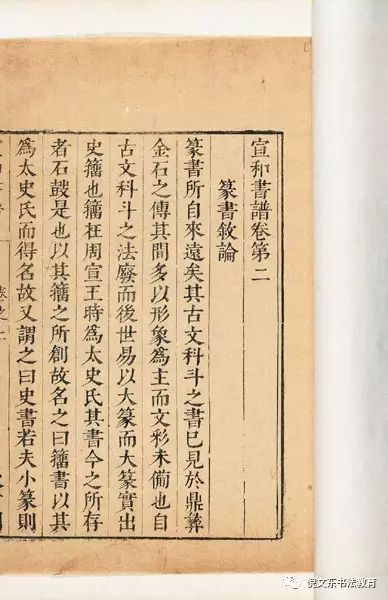 宣和書譜卷第二
篆書敘論
篆書所自來遠矣其古文科斗之書已見於鼎彝
金石之傳其間多以形象為主而文彩未備也自
古文科斗之法廢而後世易以大篆而大篆實出
史籀也籀在周宣王時為太史氏其書今之所存
者石鼓是也以其籀之所創故名之曰籀書以其
為太史氏而得名故又謂之曰史書若夫小篆則
倪文东书法教育